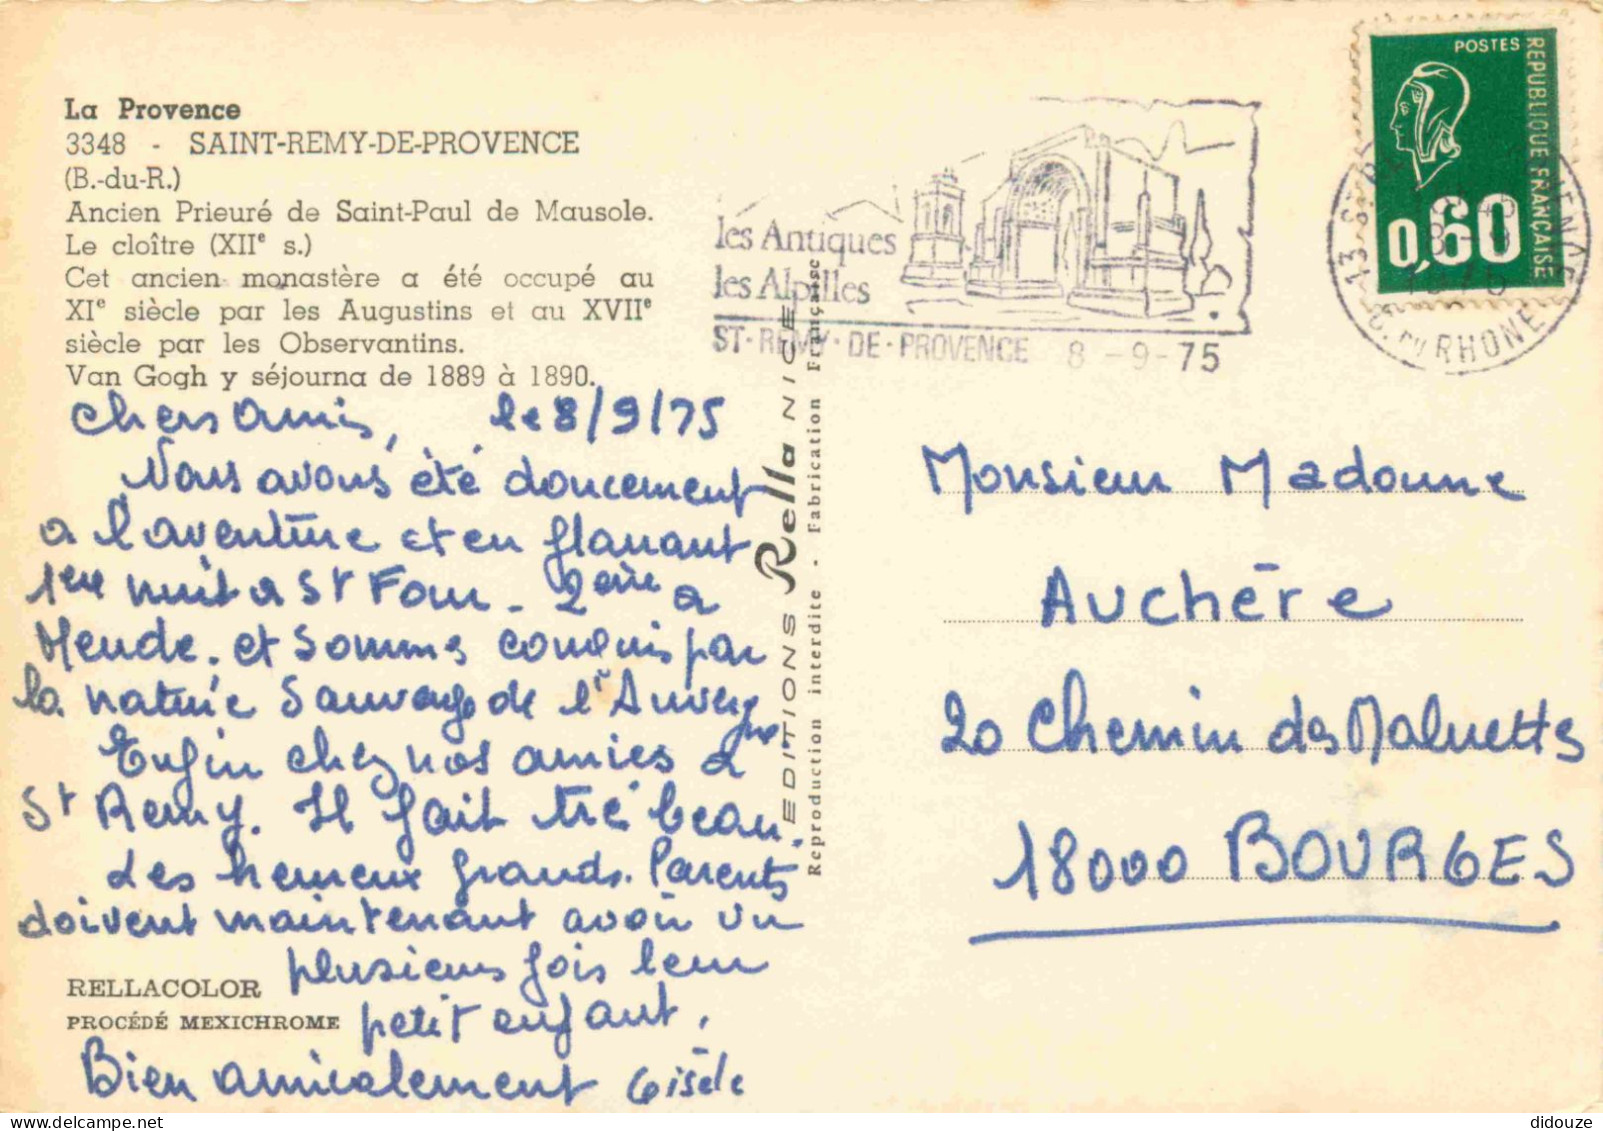 La Provence
3348 - SAINT-REMY-DE-PROVENCE
(B.-du-R.)
Ancien Prieuré de Saint-Paul de Mausole.
Le cloître (XIIe s.)
Cet ancien monastère a été occupé au
XIe siècle par les Augustins et au XVIIe
siècle par les Observantins.
Van Gogh y séjourna de 1889 à 1890.
Chers Amis, le 8/9/75
Nous avons été doucement
a l'aventure et en flanant
1ere nuit a St Flour - 2eme a
Mende. et sommes conquis par
la nature sauvage de l'Auvergne
Enfin chez nos amies a
St Remy. Il fait tré beau.
Les heureux grands. Parents
doivent maintenant avoir vu
plusieurs fois leur
petit enfant.
Bien amicalement Gisèle
RELLACOLOR
PROCÉDÉ MEXICHROME
EDITIONS Rella NICE
Reproduction interdite - Fabrication Française
les Antiques
les Alpilles
ST-REMY-DE-PROVENCE 8-9-75
POSTES
REPUBLIQUE FRANÇAISE
0,60
13 ST
B. DU RHONE
Monsieur Madame
Auchère
20 Chemin des Maluettes
18000 BOURGES
didouze